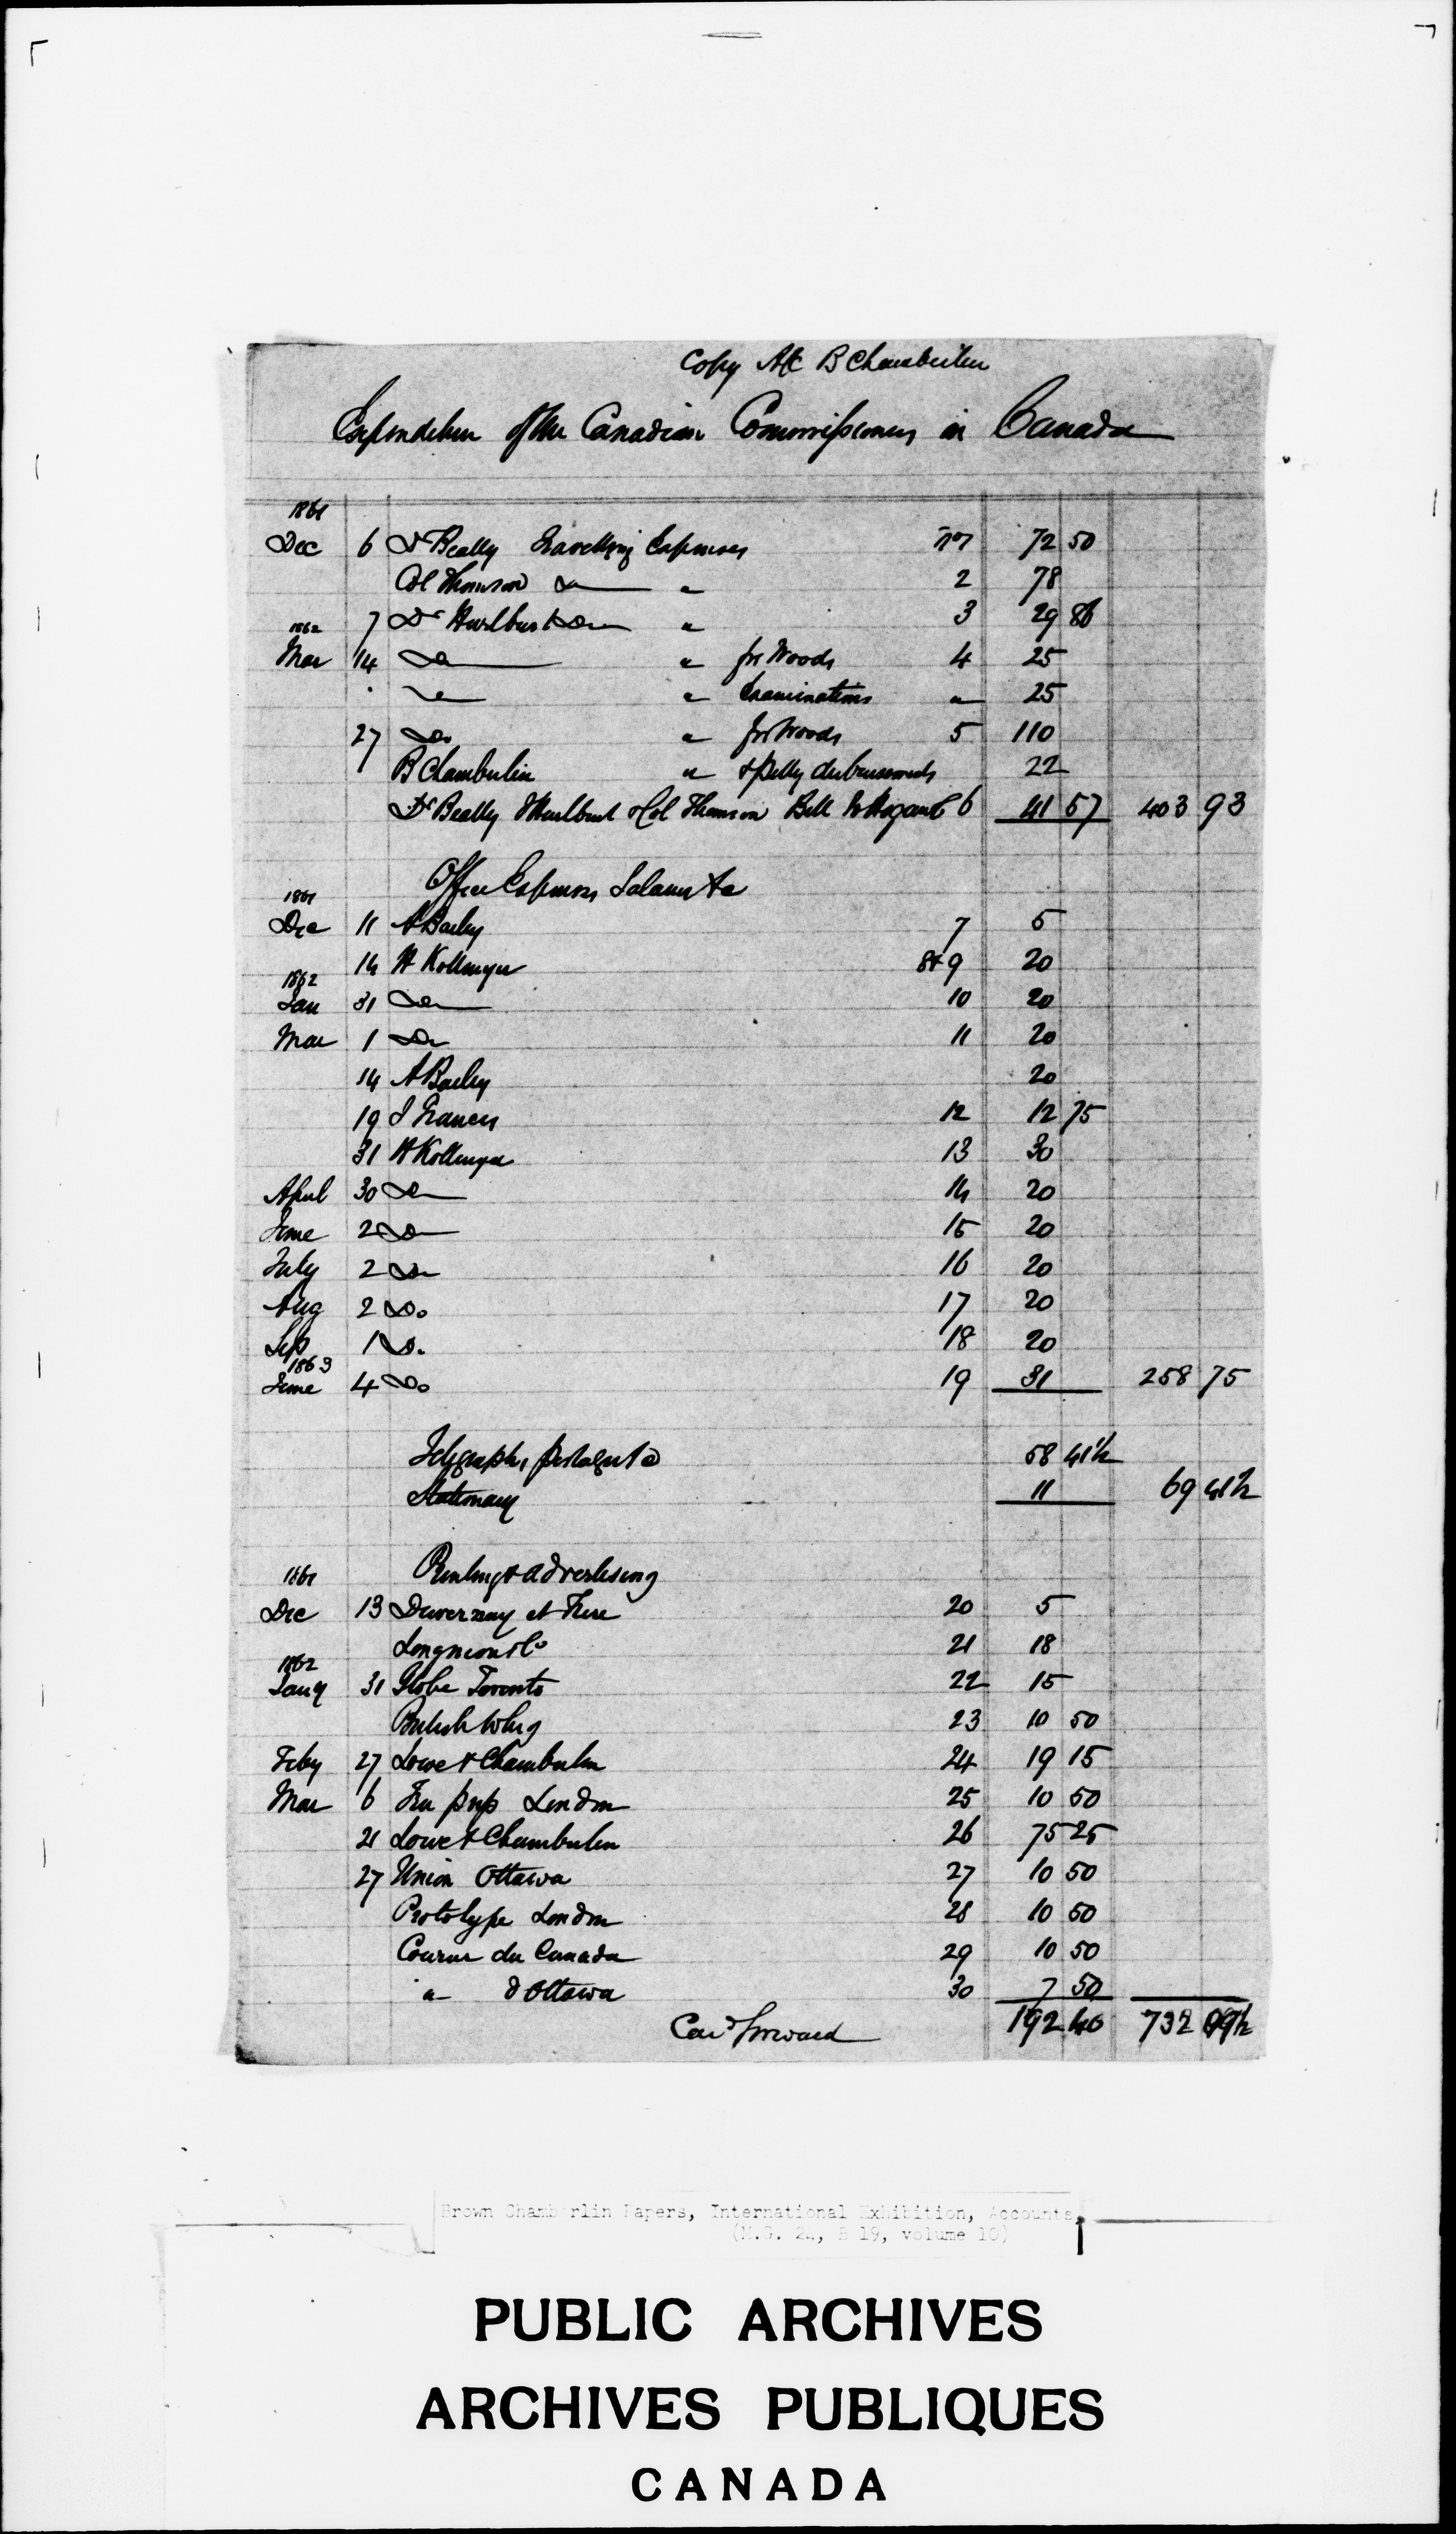 Copy A/c B Chamberlin
Expenditure of the Canadian Commissioners in Canada
1861
Dec 6 Dr Beatty Travelling Expenses No 1 72 50
Col Thomson Do " 2 78
7 Dr Hurlburt Do " 3 29 86
1862
Mar 14 Do " for Woods 4 25
" Do " Examinations " 25
27 Do " for Woods 5 110
B Chamberlin " & petty disbursements 22
Dr Beatty & Hurlburt & Col Thomson Bill 6 41 57 403 93
Office Expenses Salaries &c
1861
Dec 11 A Bailey 7 5
14 H Kollmyer 8+9 20
1862
Jan 31 Do 10 20
Mar 1 Do 11 20
14 A Bailey 20
19 J Francis 12 12 75
31 H Kollmyer 13 30
April 30 Do 14 20
June 2 Do 15 20
July 2 Do 16 20
Aug 2 Do 17 20
Sep 1 Do 18 20
1863
June 4 Do 19 31 258 75
Telegraph, postage &c 58 41½
Stationary 11 69 41½
Printing & advertising
1861
Dec 13 Duvernay et Frere 20 5
Longmoor & Co 21 18
1862
Jany 31 Globe Toronto 22 15
British Whig 23 10 50
Feby 27 Lowe & Chamberlin 24 19 15
Mar 6 Free press London 25 10 50
21 Lowe & Chamberlin 26 75 25
27 Union Ottawa 27 10 50
Prototype London 28 10 50
Courier du Canada 29 10 50
" d Ottawa 30 7 50
Card forward 192 40 732 09½
Brown Chamberlin Papers, International Exhibition, Accounts,
(M.G. 24, B 19, volume 10)
PUBLIC ARCHIVES
ARCHIVES PUBLIQUES
CANADA